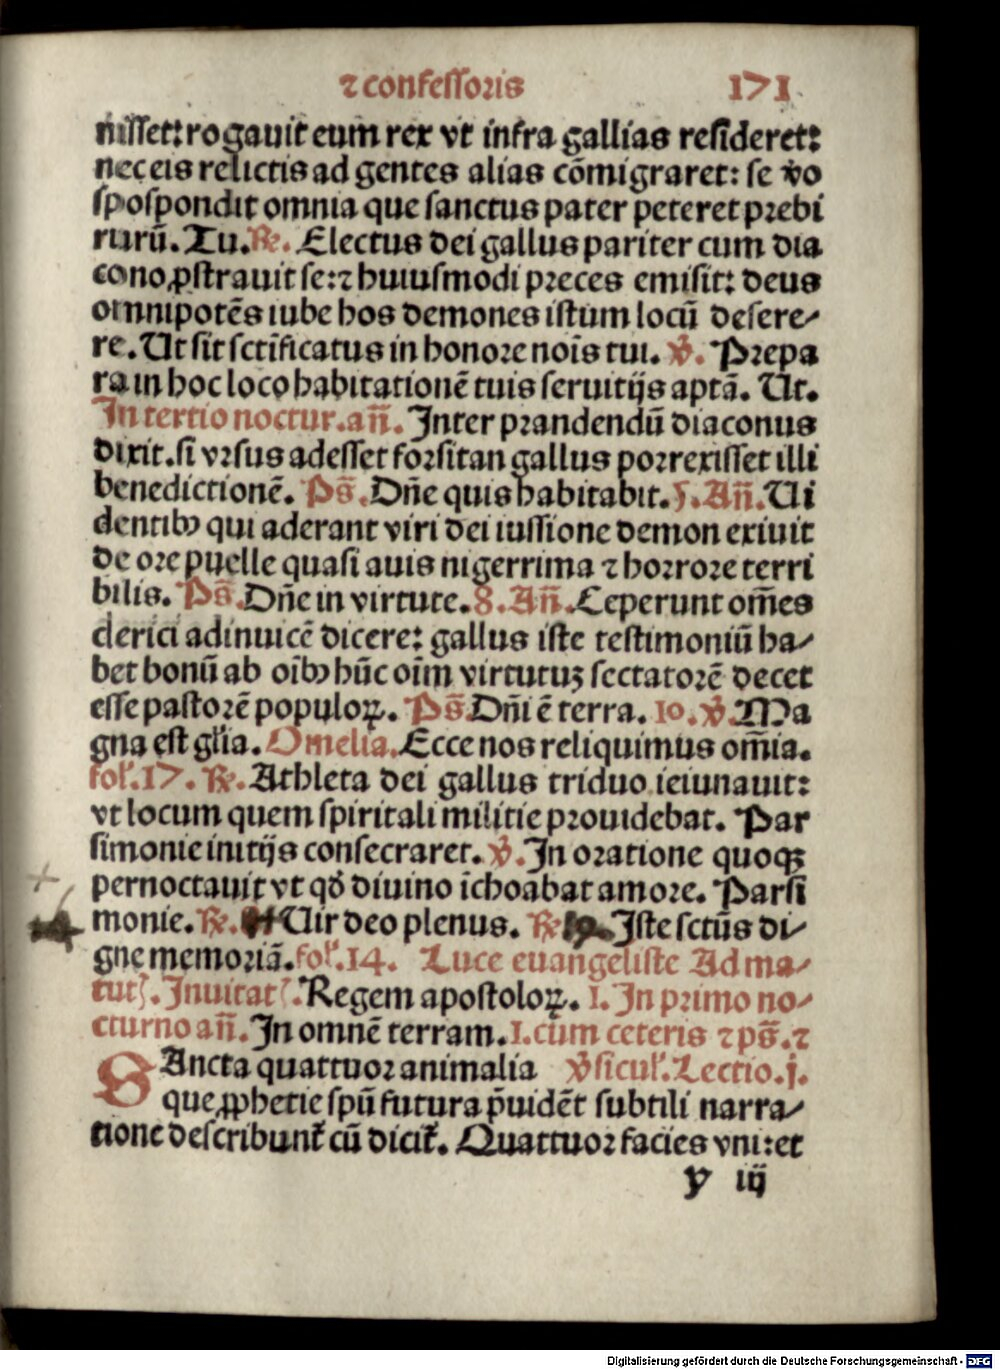 ⁊ confessoris 171
nisset: rogauit eum rex vt infra gallias resideret:
nec eis relictis ad gentes alias cōmigraret: se v̄o
spospondit omnia que sanctus pater peteret prebi
turū. Tu. ℟. Electus dei gallus pariter cum dia
cono ꝓstrauit se: ⁊ huiusmodi preces emisit: deus
omnipotēs iube hos demones istum locū desere⸗
re. Ut sit sctīficatus in honore noīs tui. ℣. Prepa
ra in hoc loco habitationē tuis seruitijs aptā. Ut.
In tertio noctur. añ. Inter prandendū diaconus
dixit. si vrsus adesset forsitan gallus porrexisset illi
benedictionē. Ps̄. Dñe quis habitabit. 5. Añ. Ui
dentibꝰ qui aderant viri dei iussione demon exiuit
de ore puelle quasi auis nigerrima ⁊ horrore terri
bilis. Ps̄. Dñe in virtute. 8. Añ. Ceperunt om̄es
clerici adinuicē dicere: gallus iste testimoniū ha⸗
bet bonū ab oībꝰ hūc oīm virtutuꝫ sectatorē decet
esse pastorē populoꝝ. Ps̄. Dñi ē terra. 10. ℣. Ma
gna est gl̄ia. Omelia. Ecce nos reliquimus om̄ia.
fol̓. 17. ℟. Athleta dei gallus triduo ieiunauit:
vt locum quem spiritali militie prouidebat. Par
simonie initijs consecraret. ℣. In oratione quoqꝫ
pernoctauit vt qđ diuino īchoabat amore. Parsi
monie. ℟. Uir deo plenus. ℟. 19. Iste sctūs di⸗
gne memoriā. fol̓. 14. Luce euangeliste Ad ma⸗
tut̓. Inuitat̓. Regem apostoloꝝ. 1. In primo no⸗
cturno añ. In omnē terram. 1. cum ceteris ⁊ ps̄. ⁊
SAncta quattuor animalia v̄sicul̓. Lectio. j.
que ꝓphetie spū futura p̄uidēt subtili narra⸗
tione describunt̓ cū dicit̓. Quattuor facies vni: et
y iij
14
Digitalisierung gefördert durch die Deutsche Forschungsgemeinschaft - DFG